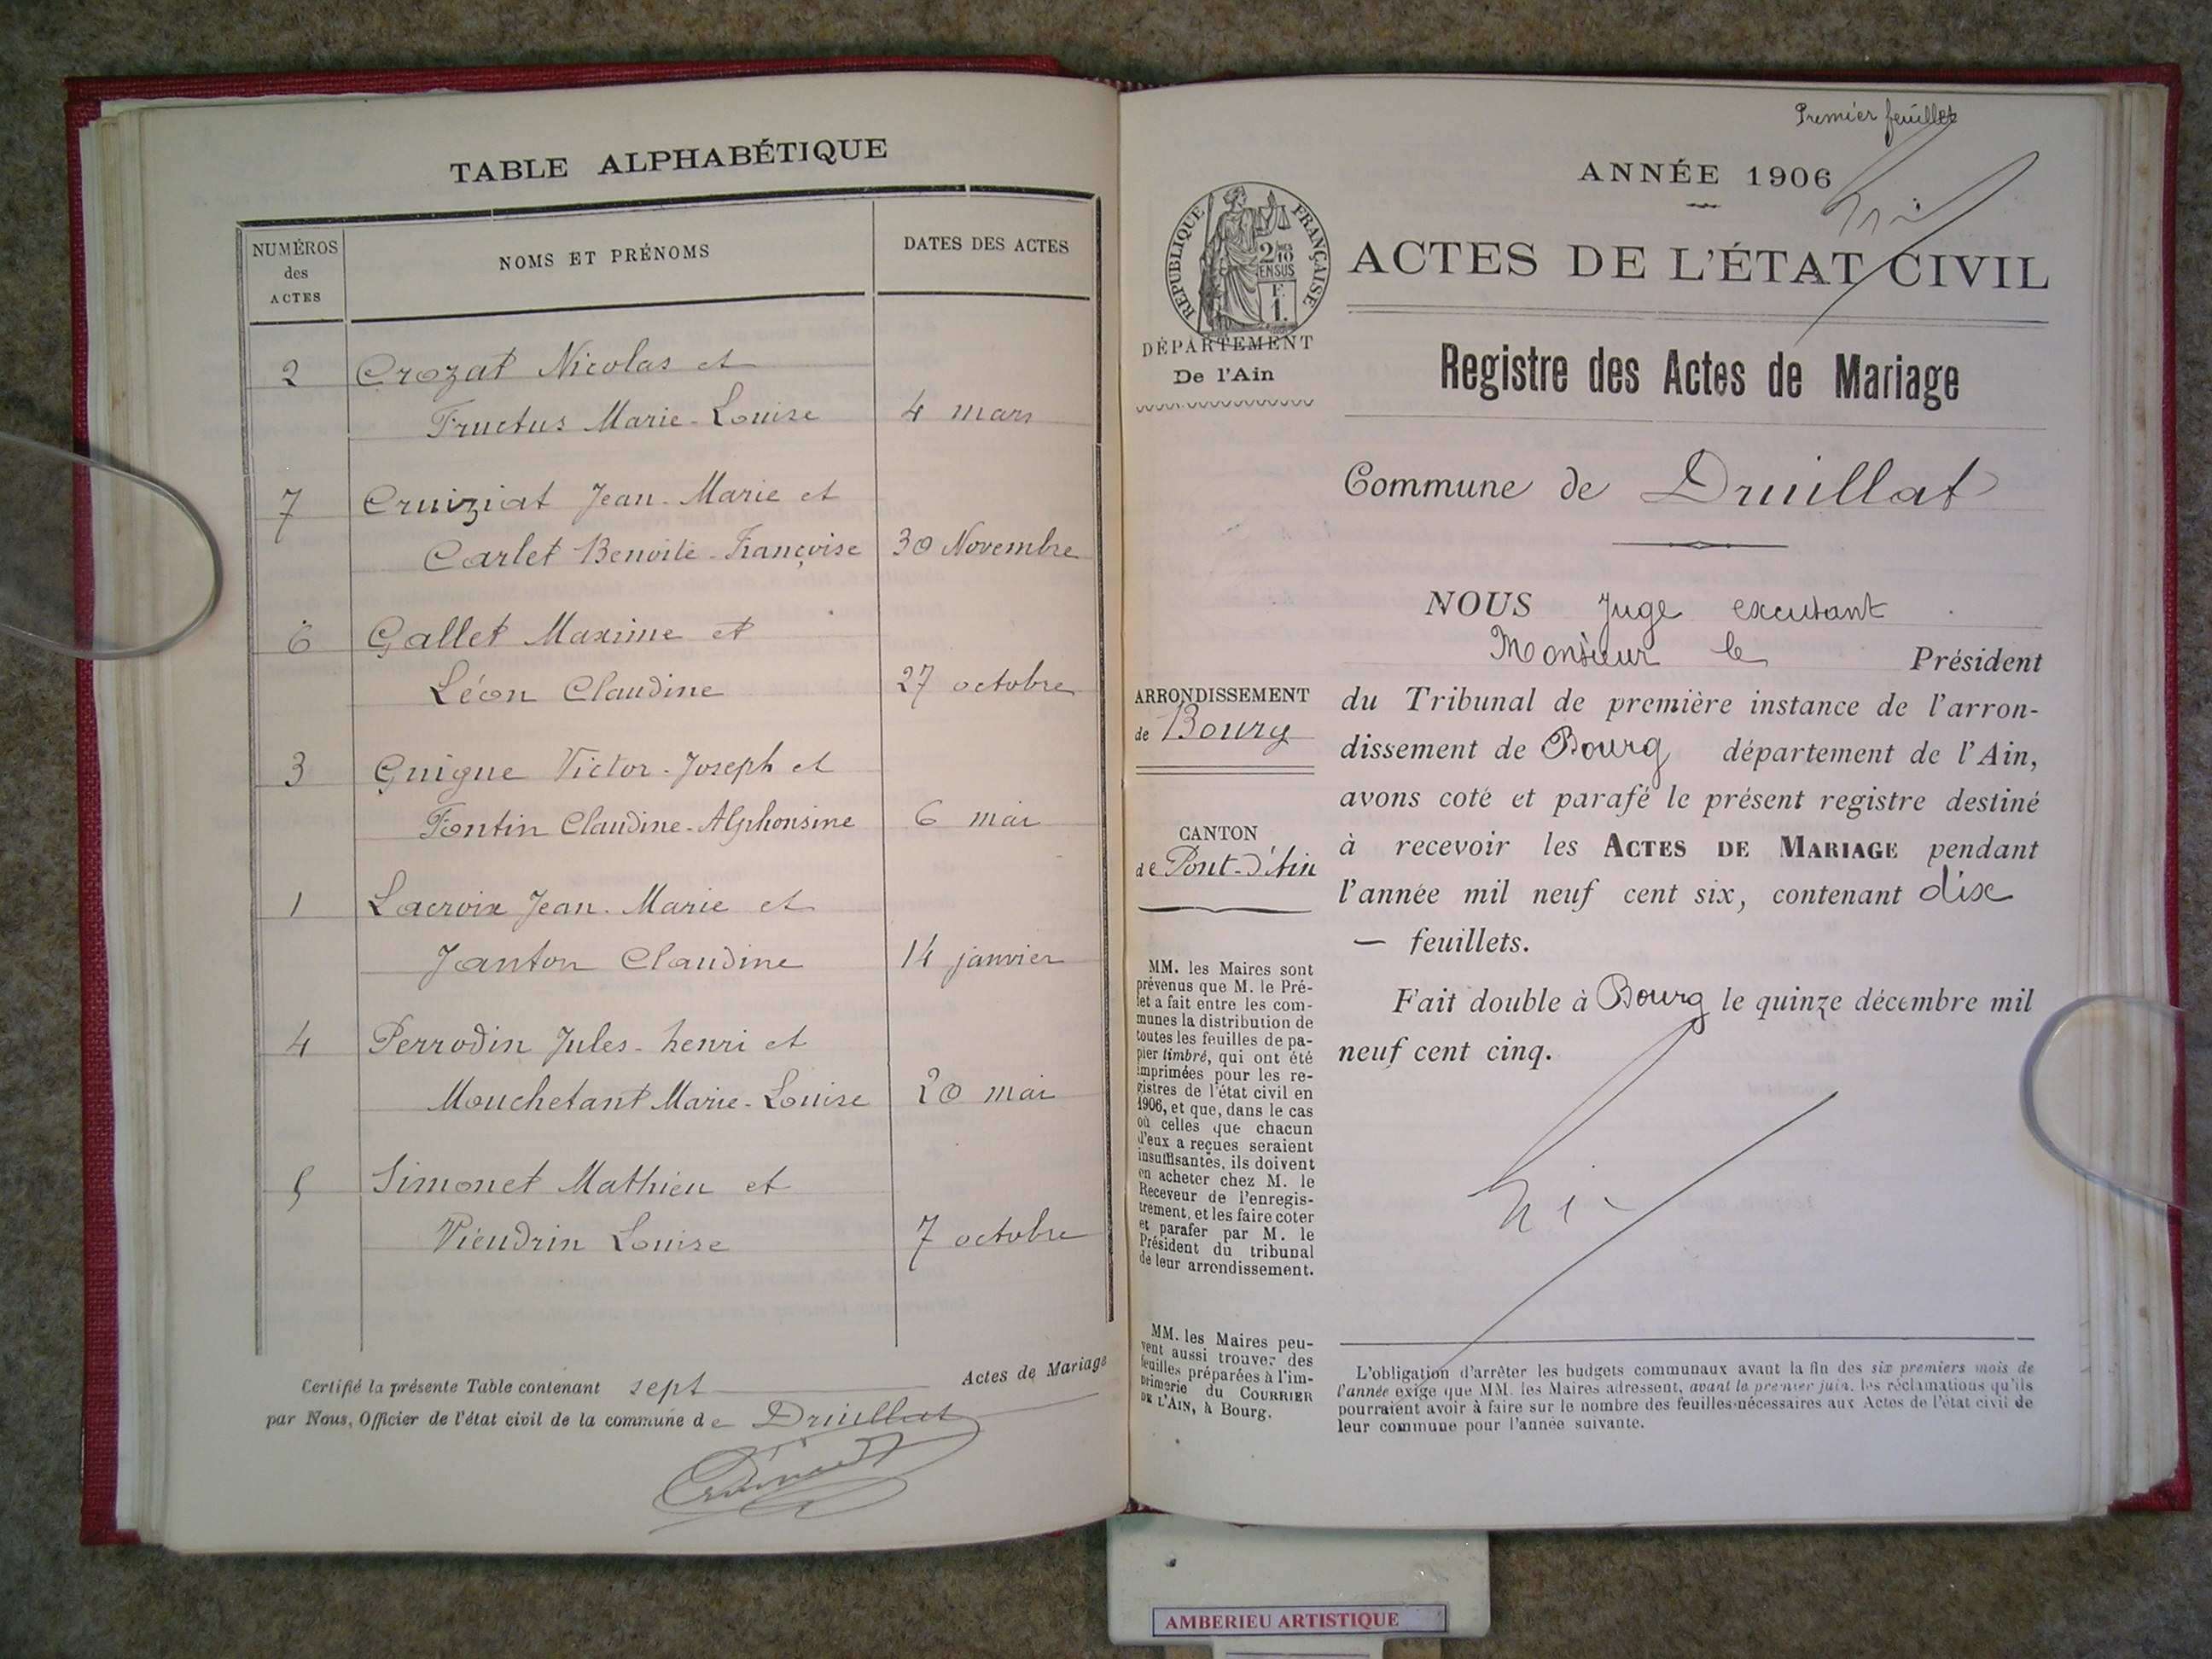 TABLE ALPHABÉTIQUE
NUMÉROS
des
ACTES
NOMS ET PRÉNOMS
DATES DES ACTES
2 Crozat Nicolas et
Fructus Marie-Louise 4 mars
7 Cruiziat Jean-Marie et
Carlet Benoite-Françoise 30 Novembre
6 Gallet Maxime et
Léon Claudine 27 octobre
3 Guigue Victor-Joseph et
Fontin Claudine-Alphonsine 6 mai
1 Lacroix Jean-Marie et
Janton Claudine 14 janvier
4 Perrodin Jules-henri et
Mouchetant Marie-Louise 20 mai
5 Simonet Mathieu et
Vieudrin Louise 7 octobre
Certifié la présente Table contenant sept Actes de Mariage
par Nous, Officier de l'état civil de la commune de Druillat
Premier feuillet
ANNÉE 1906
RÉPUBLIQUE FRANÇAISE
2/10
EN SUS
F.
1.
ACTES DE L'ÉTAT CIVIL
DÉPARTEMENT
De l'Ain
Registre des Actes de Mariage
Commune de Druillat
NOUS Juge excutant
Monsieur le Président
ARRONDISSEMENT
de Bourg
du Tribunal de première instance de l'arron-
dissement de Bourg département de l'Ain,
avons coté et parafé le présent registre destiné
à recevoir les ACTES DE MARIAGE pendant
l'année mil neuf cent six, contenant dix
— feuillets.
Fait double à Bourg le quinze décembre mil
neuf cent cinq.
CANTON
de Pont-d'Ain
MM. les Maires sont
prévenus que M. le Pré-
fet a fait entre les com-
munes la distribution de
toutes les feuilles de pa-
pier timbré, qui ont été
imprimées pour les re-
gistres de l'état civil en
1906, et que, dans le cas
où celles que chacun
d'eux a reçues seraient
insuffisantes, ils doivent
en acheter chez M. le
Receveur de l'enregis-
trement, et les faire coter
et parafer par M. le
Président du tribunal
de leur arrondissement.
MM. les Maires peu-
vent aussi trouver des
feuilles préparées à l'im-
primerie du COURRIER
DE L'AIN, à Bourg.
L'obligation d'arrêter les budgets communaux avant la fin des six premiers mois de
l'année exige que MM. les Maires adressent, avant le premier juin, les réclamations qu'ils
pourraient avoir à faire sur le nombre des feuilles nécessaires aux Actes de l'état civil de
leur commune pour l'année suivante.
AMBERIEU ARTISTIQUE